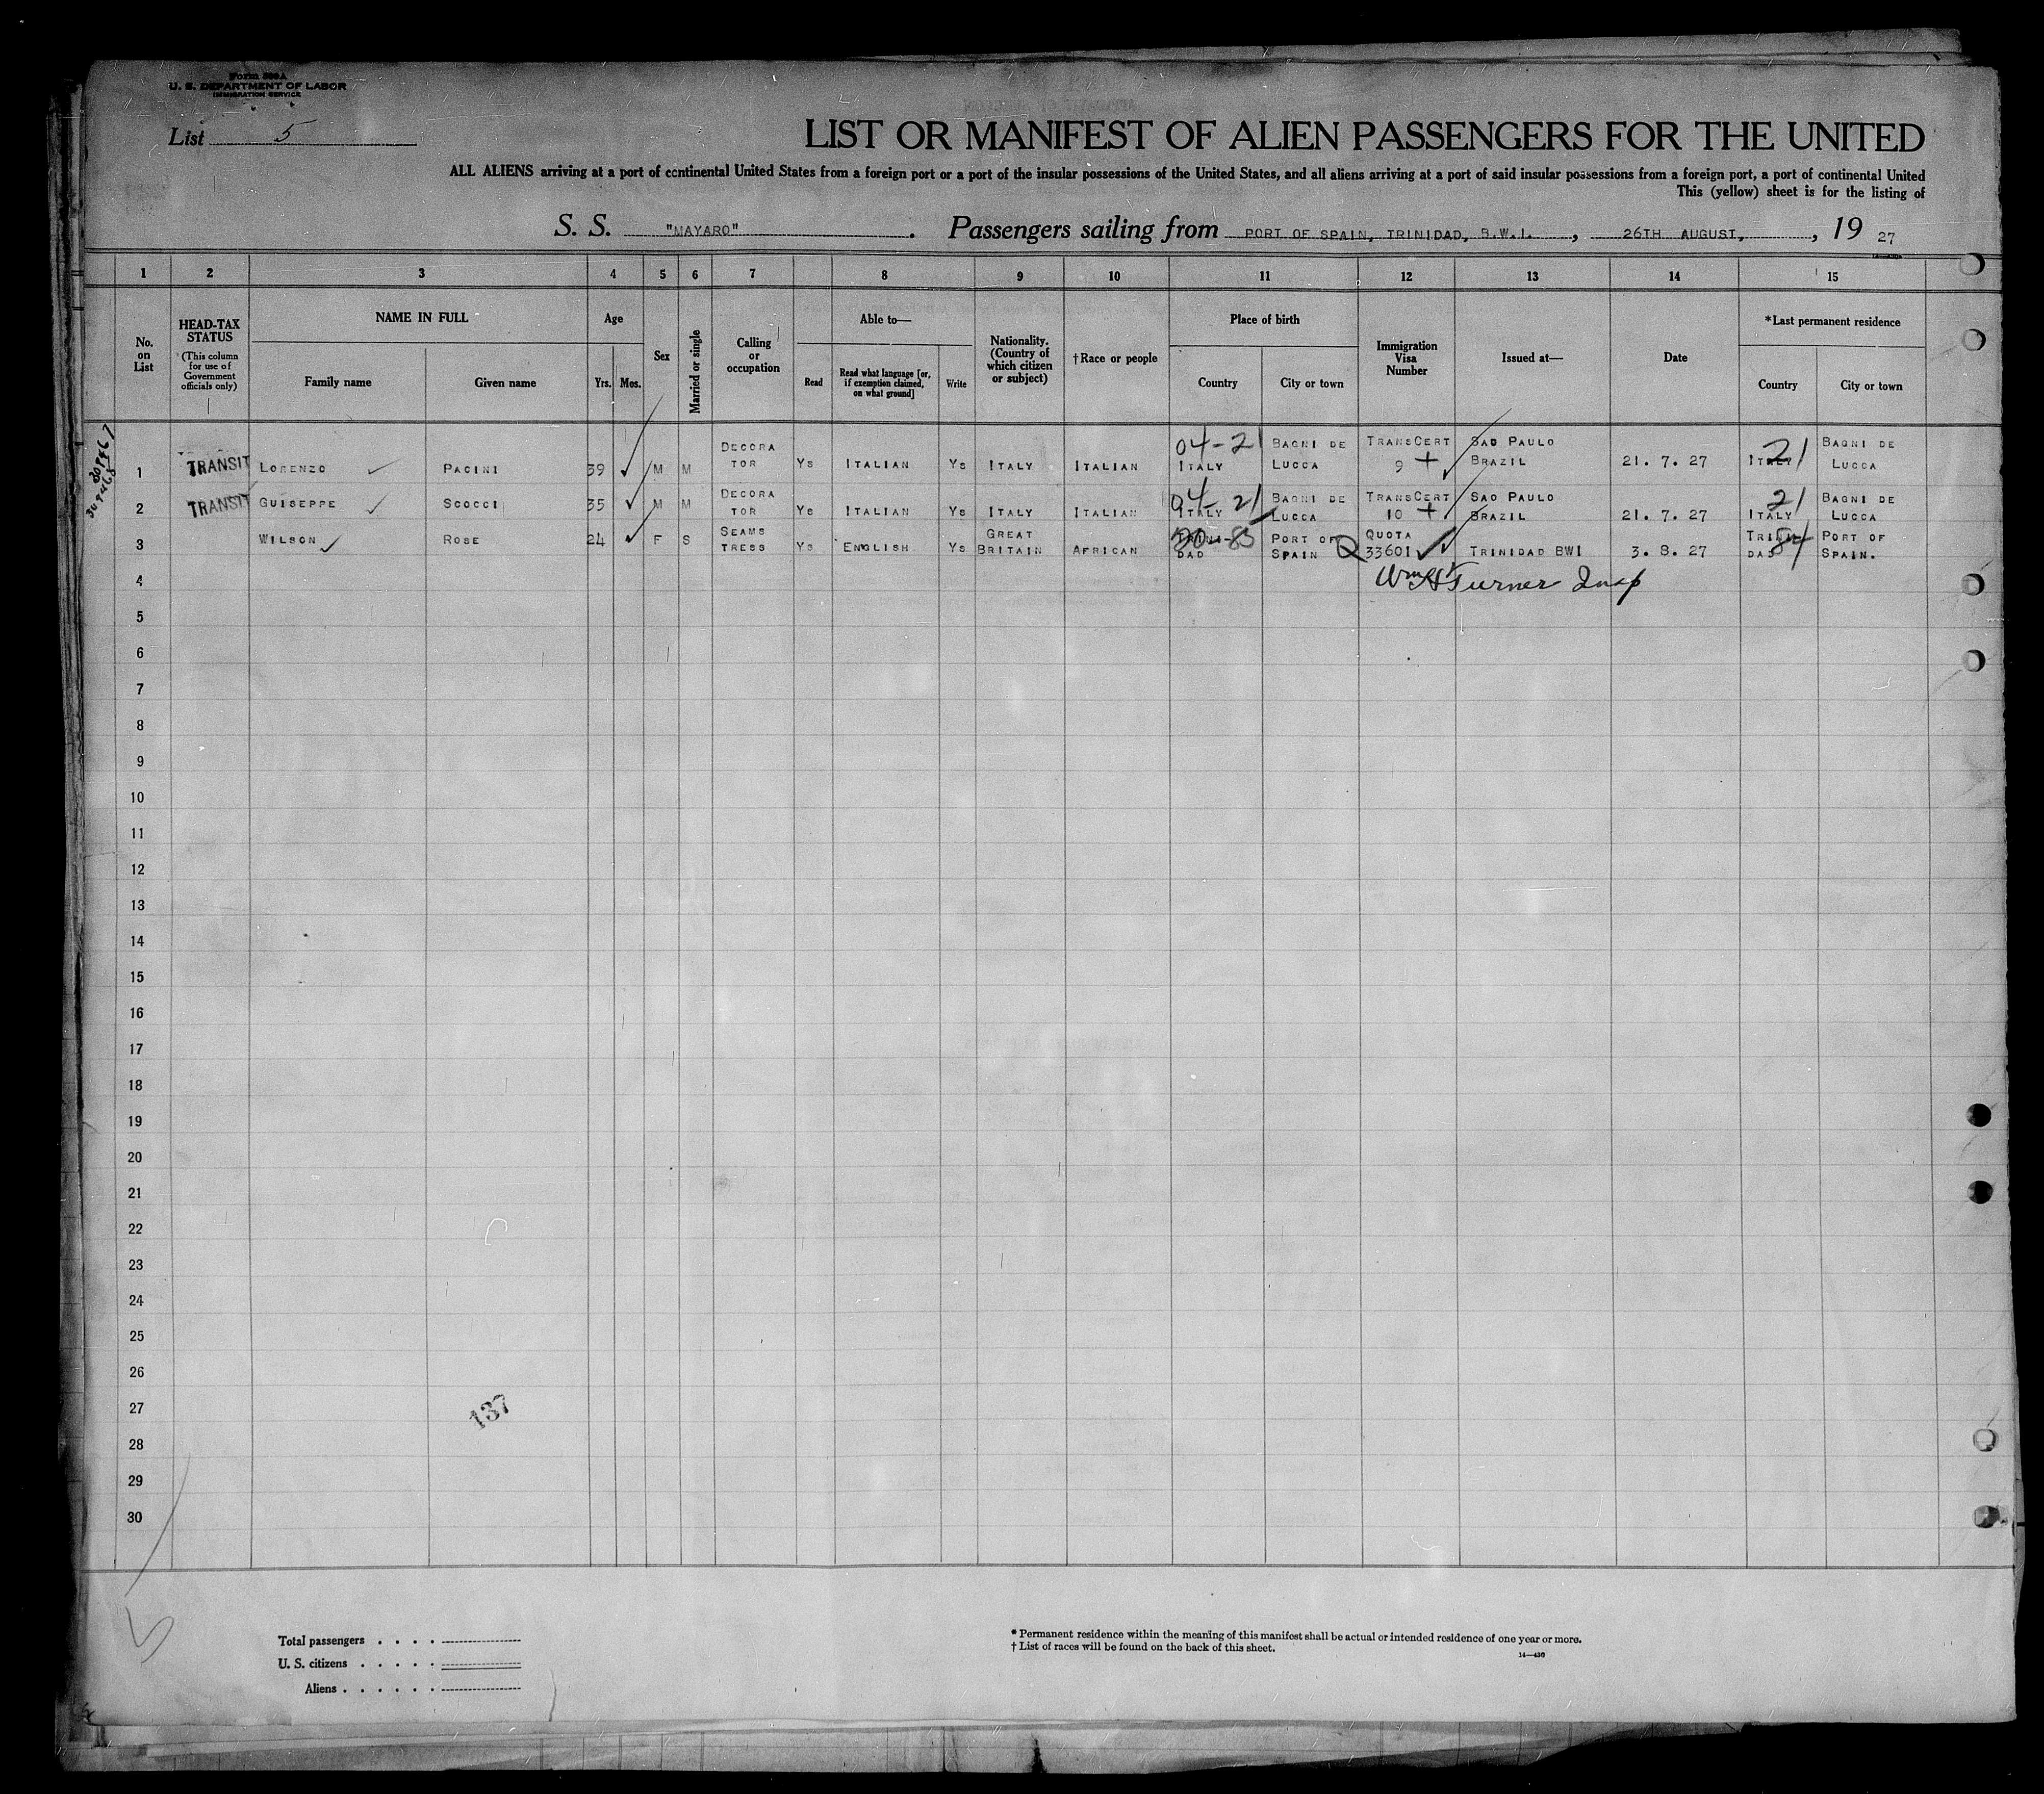 Form 500A
U. S. DEPARTMENT OF LABOR
IMMIGRATION SERVICE
List 5
LIST OR MANIFEST OF ALIEN PASSENGERS FOR THE UNITED
ALL ALIENS arriving at a port of continental United States from a foreign port or a port of the insular possessions of the United States, and all aliens arriving at a port of said insular possessions from a foreign port, a port of continental United
This (yellow) sheet is for the listing of
S. S. "MAYARO" . Passengers sailing from PORT OF SPAIN, TRINIDAD, B.W.I. , 26TH AUGUST, , 19 27
1 2 3 4 5 6 7 8 9 10 11 12 13 14 15
No. on List
HEAD-TAX STATUS
(This column for use of Government officials only)
NAME IN FULL
Family name Given name
Age
Yrs. Mos.
Sex
Married or single
Calling or occupation
Able to—
Read
Read what language [or, if exemption claimed, on what ground]
Write
Nationality. (Country of which citizen or subject)
†Race or people
Place of birth
Country City or town
Immigration Visa Number
Issued at—
Date
*Last permanent residence
Country City or town
1 TRANSIT LORENZO PACINI 39 M M DECORA TOR YS ITALIAN YS ITALY ITALIAN 04-21 ITALY BAGNI DE LUCCA TRANSCERT 9 SAO PAULO BRAZIL 21. 7. 27 ITALY 21 BAGNI DE LUCCA
2 TRANSIT GUISEPPE SCOCCI 35 M M DECORA TOR YS ITALIAN YS ITALY ITALIAN 04-21 ITALY BAGNI DE LUCCA TRANSCERT 10 SAO PAULO BRAZIL 21. 7. 27 21 ITALY BAGNI DE LUCCA
3 WILSON ROSE 24 F S SEAMS TRESS YS ENGLISH YS GREAT BRITAIN AFRICAN TRINI DAD PORT OF SPAIN Q QUOTA 33601 TRINIDAD BWI 3. 8. 27 TRINI DAD 84 PORT OF SPAIN.
4 Wm H Turner Insp
5
6
7
8
9
10
11
12
13
14
15
16
17
18
19
20
21
22
23
24
25
26
27
137
28
29
30
5
Total passengers
U. S. citizens
Aliens
* Permanent residence within the meaning of this manifest shall be actual or intended residence of one year or more.
† List of races will be found on the back of this sheet.
14—430